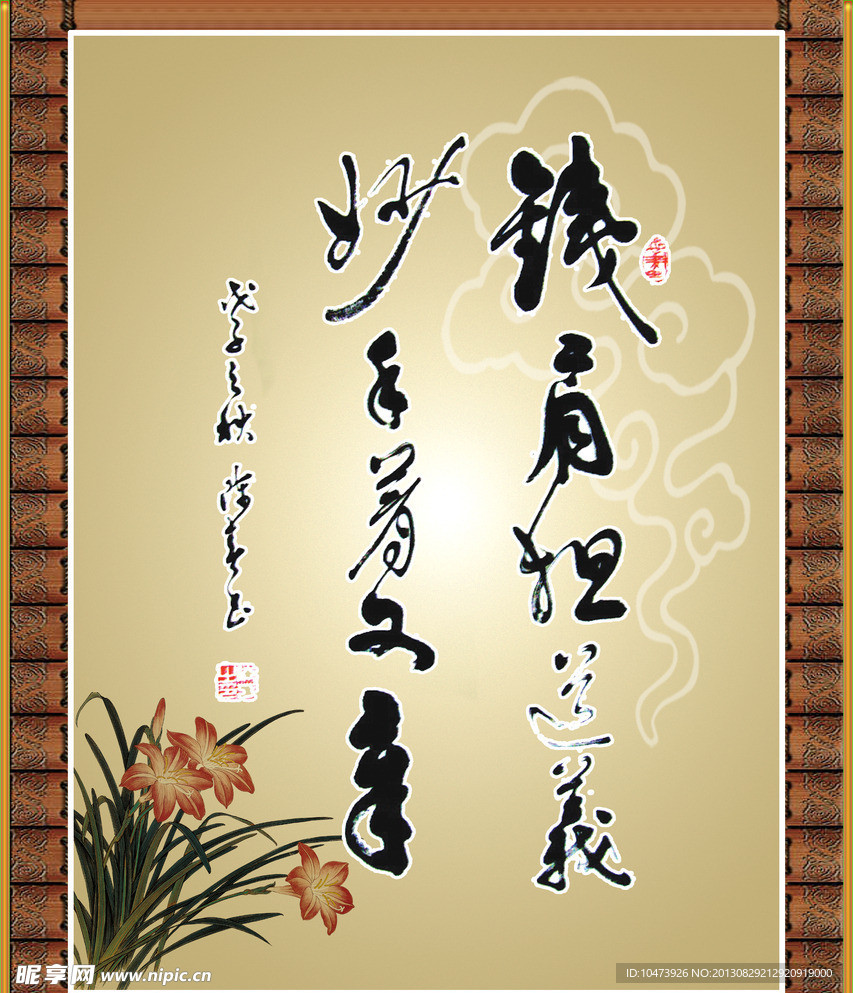 鐵肩担道義
妙手著文章
戊子之秋
昵享网 www.nipic.cn
ID:10473926 NO:20130829212920919000